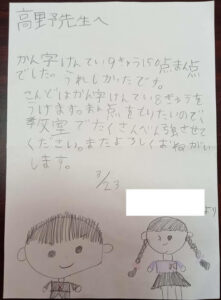 高野先生へ
かん字けんてい9きゅう150点まん点
でした。うれしかたです。
こんどはかん字けんてい8きゅうを
うけます。まん点をとりたいので、
教室でたくさんべん強させて
ください。またよろしくおねがい
します。
3/23
より